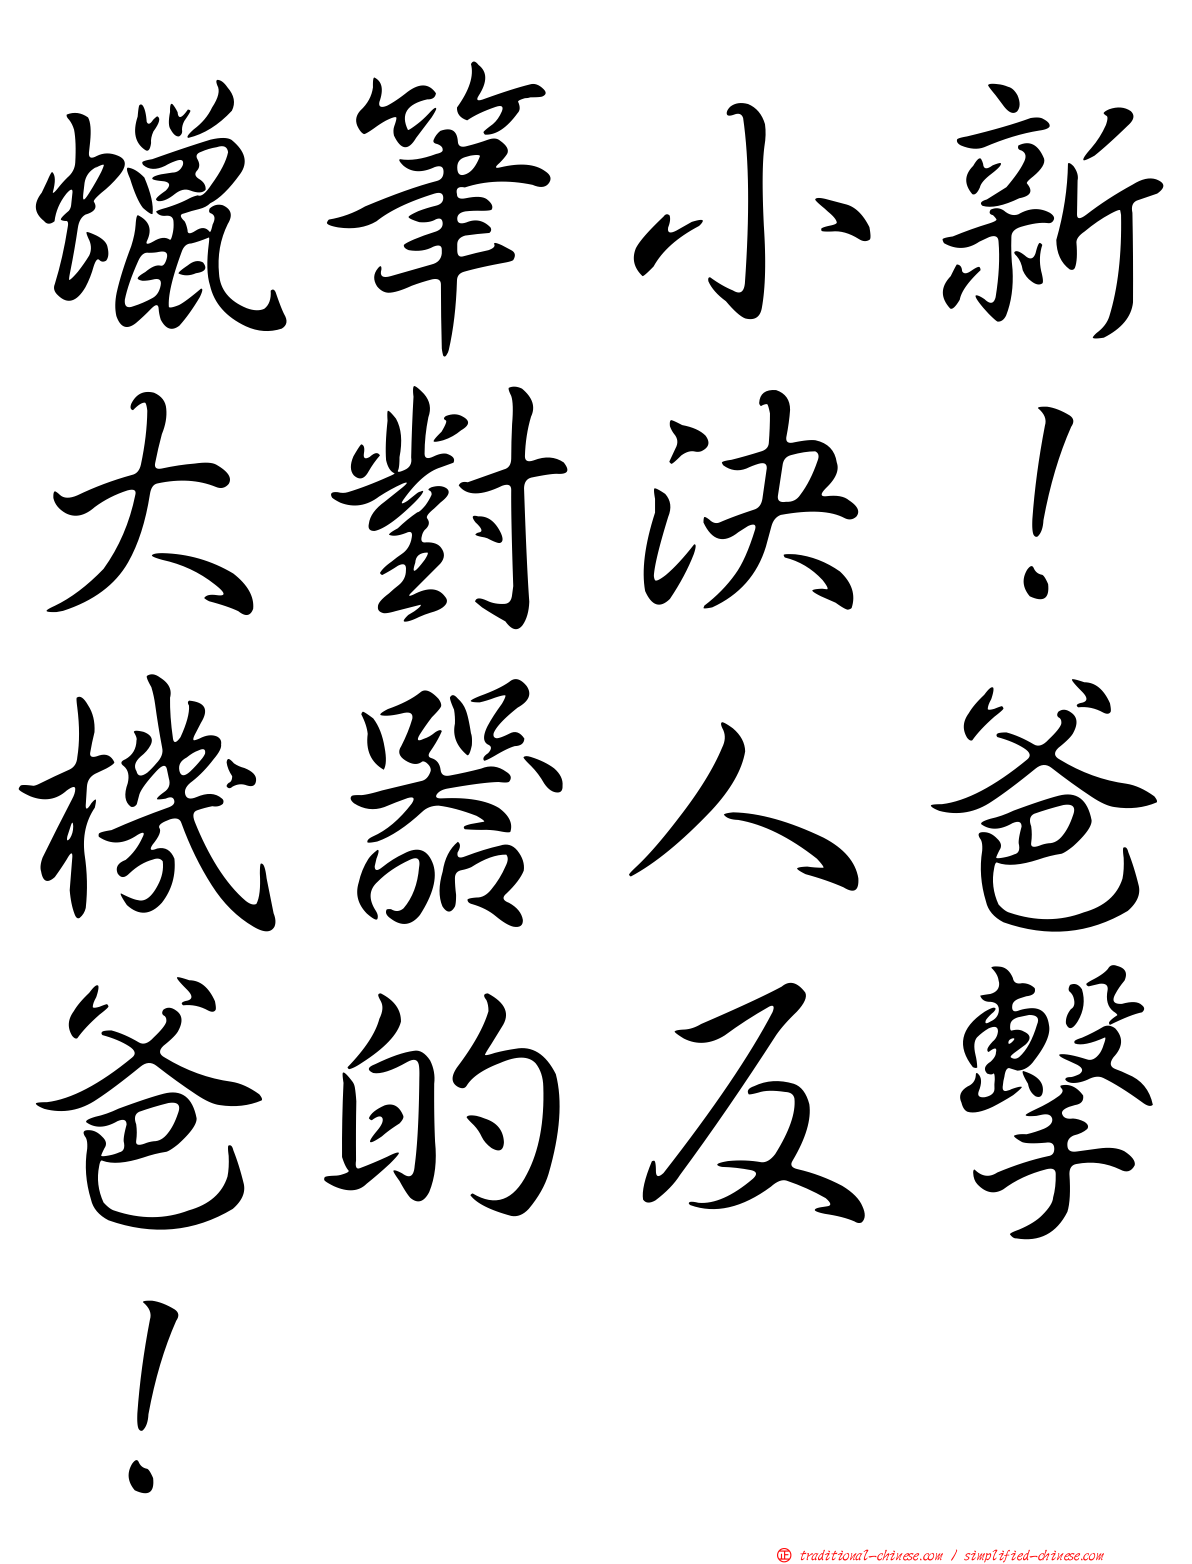 蠟筆小新
大對決！
機器人爸
爸的反擊
！
正 traditional-chinese.com / simplified-chinese.com